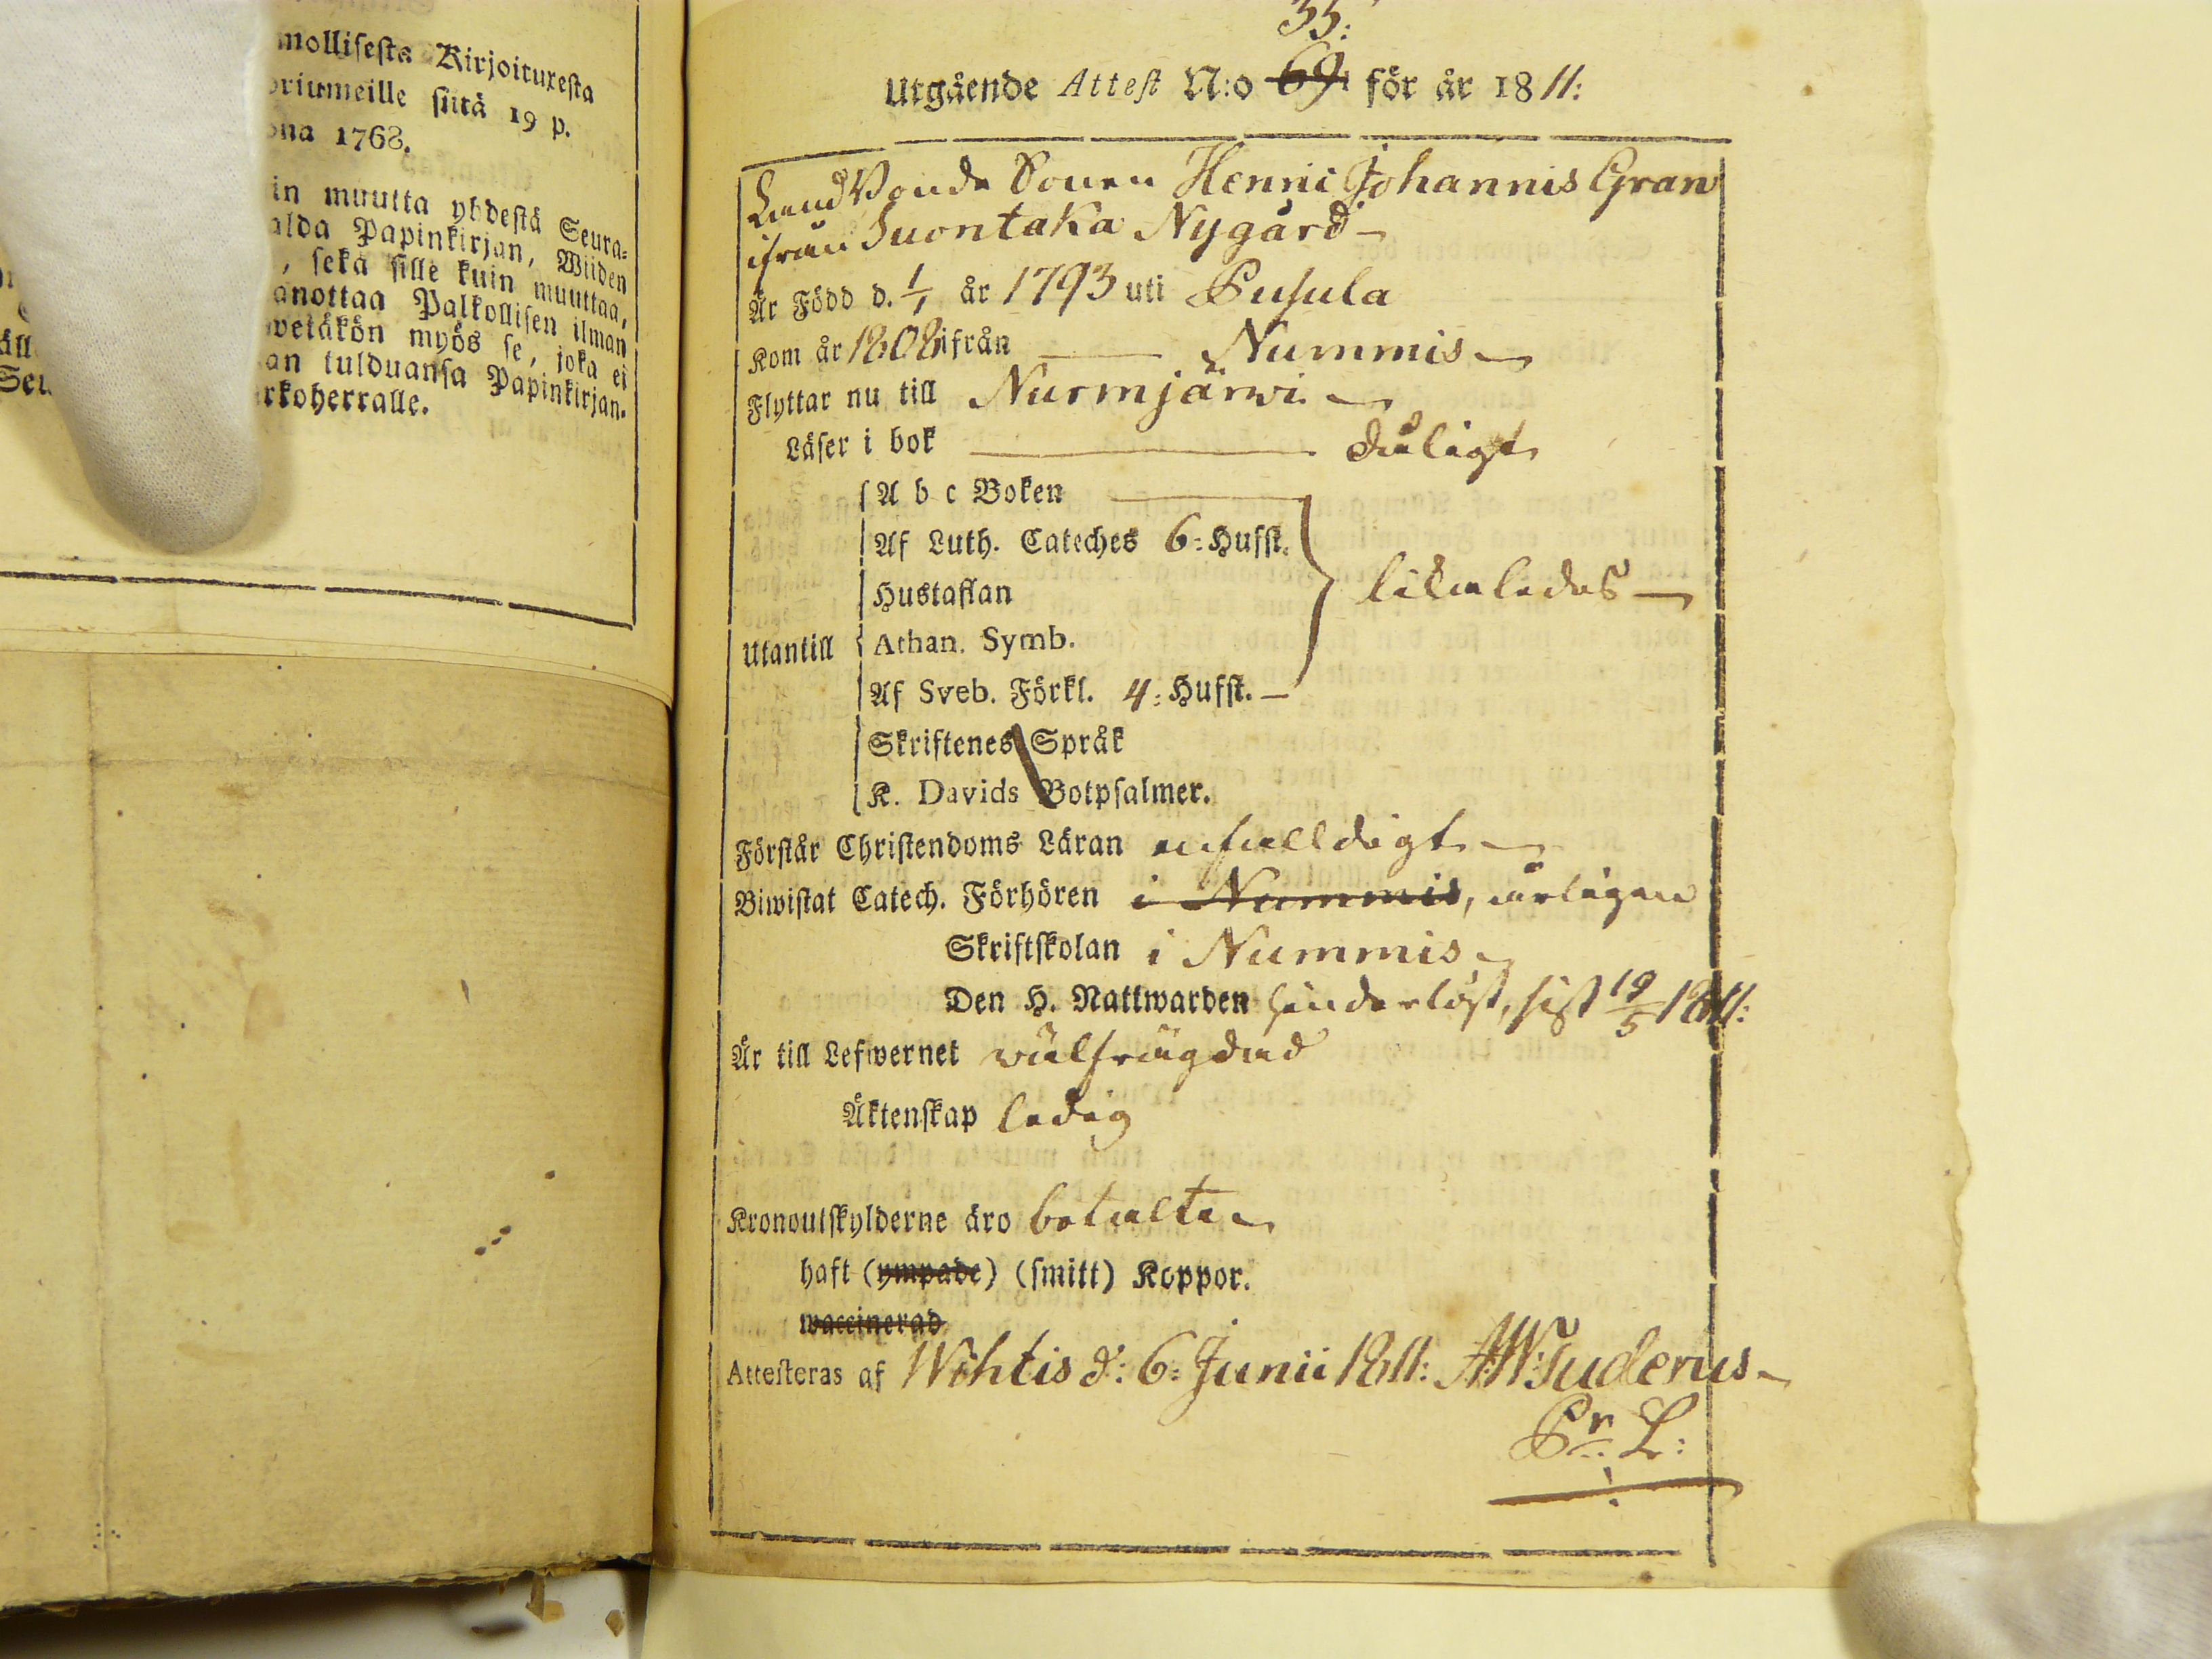 mollisesta Kirjoituxesta
oriumeille siitä 19 p.
ona 1768.
in muutta yhdestä Seura-
alda Papinkirjan, Wiiden
, sekä sille kuin muuttaa,
anottaa Palkollisen ilman
wetäkön myös se, joka ei
an tulduansa Papinkirjan-
rkoherralle.
35:
Utgående Attest N:o 69 för år 1811:
Landbonde Sonen Henric Johannis Gran
ifrån Suontaka Nygård
Är Född d. 1/1 år 1793 uti Pusula
Kom år 1808 ifrån Nummis
Flyttar nu till Nurmjärwi
Läser i bok duligt
A b c Boken
Af Luth. Cateches 6: Hufst.
Hustaflan likaledes
Utantill Athan. Symb.
Af Sveb. Förkl. 4: Hufst.
Skriftenes Språk
K. Davids Botpsalmer.
Förstår Christendoms Läran enfalldigt
Biwistat Catech. Förhören i Nummis, årligen
Skriftskolan i Nummis
Den H. Nattwarden hinderlöst, sist 19/5 1811:
Är till Lefwernet wälfrägdad
Äktenskap ledig
Kronoutskylderne äro betalte
haft (ympade) (smitt) Koppor.
waccinerad
Attesteras af Wihtis d: 6: Junii 1811: A:W:Tuderus
Pr: L: